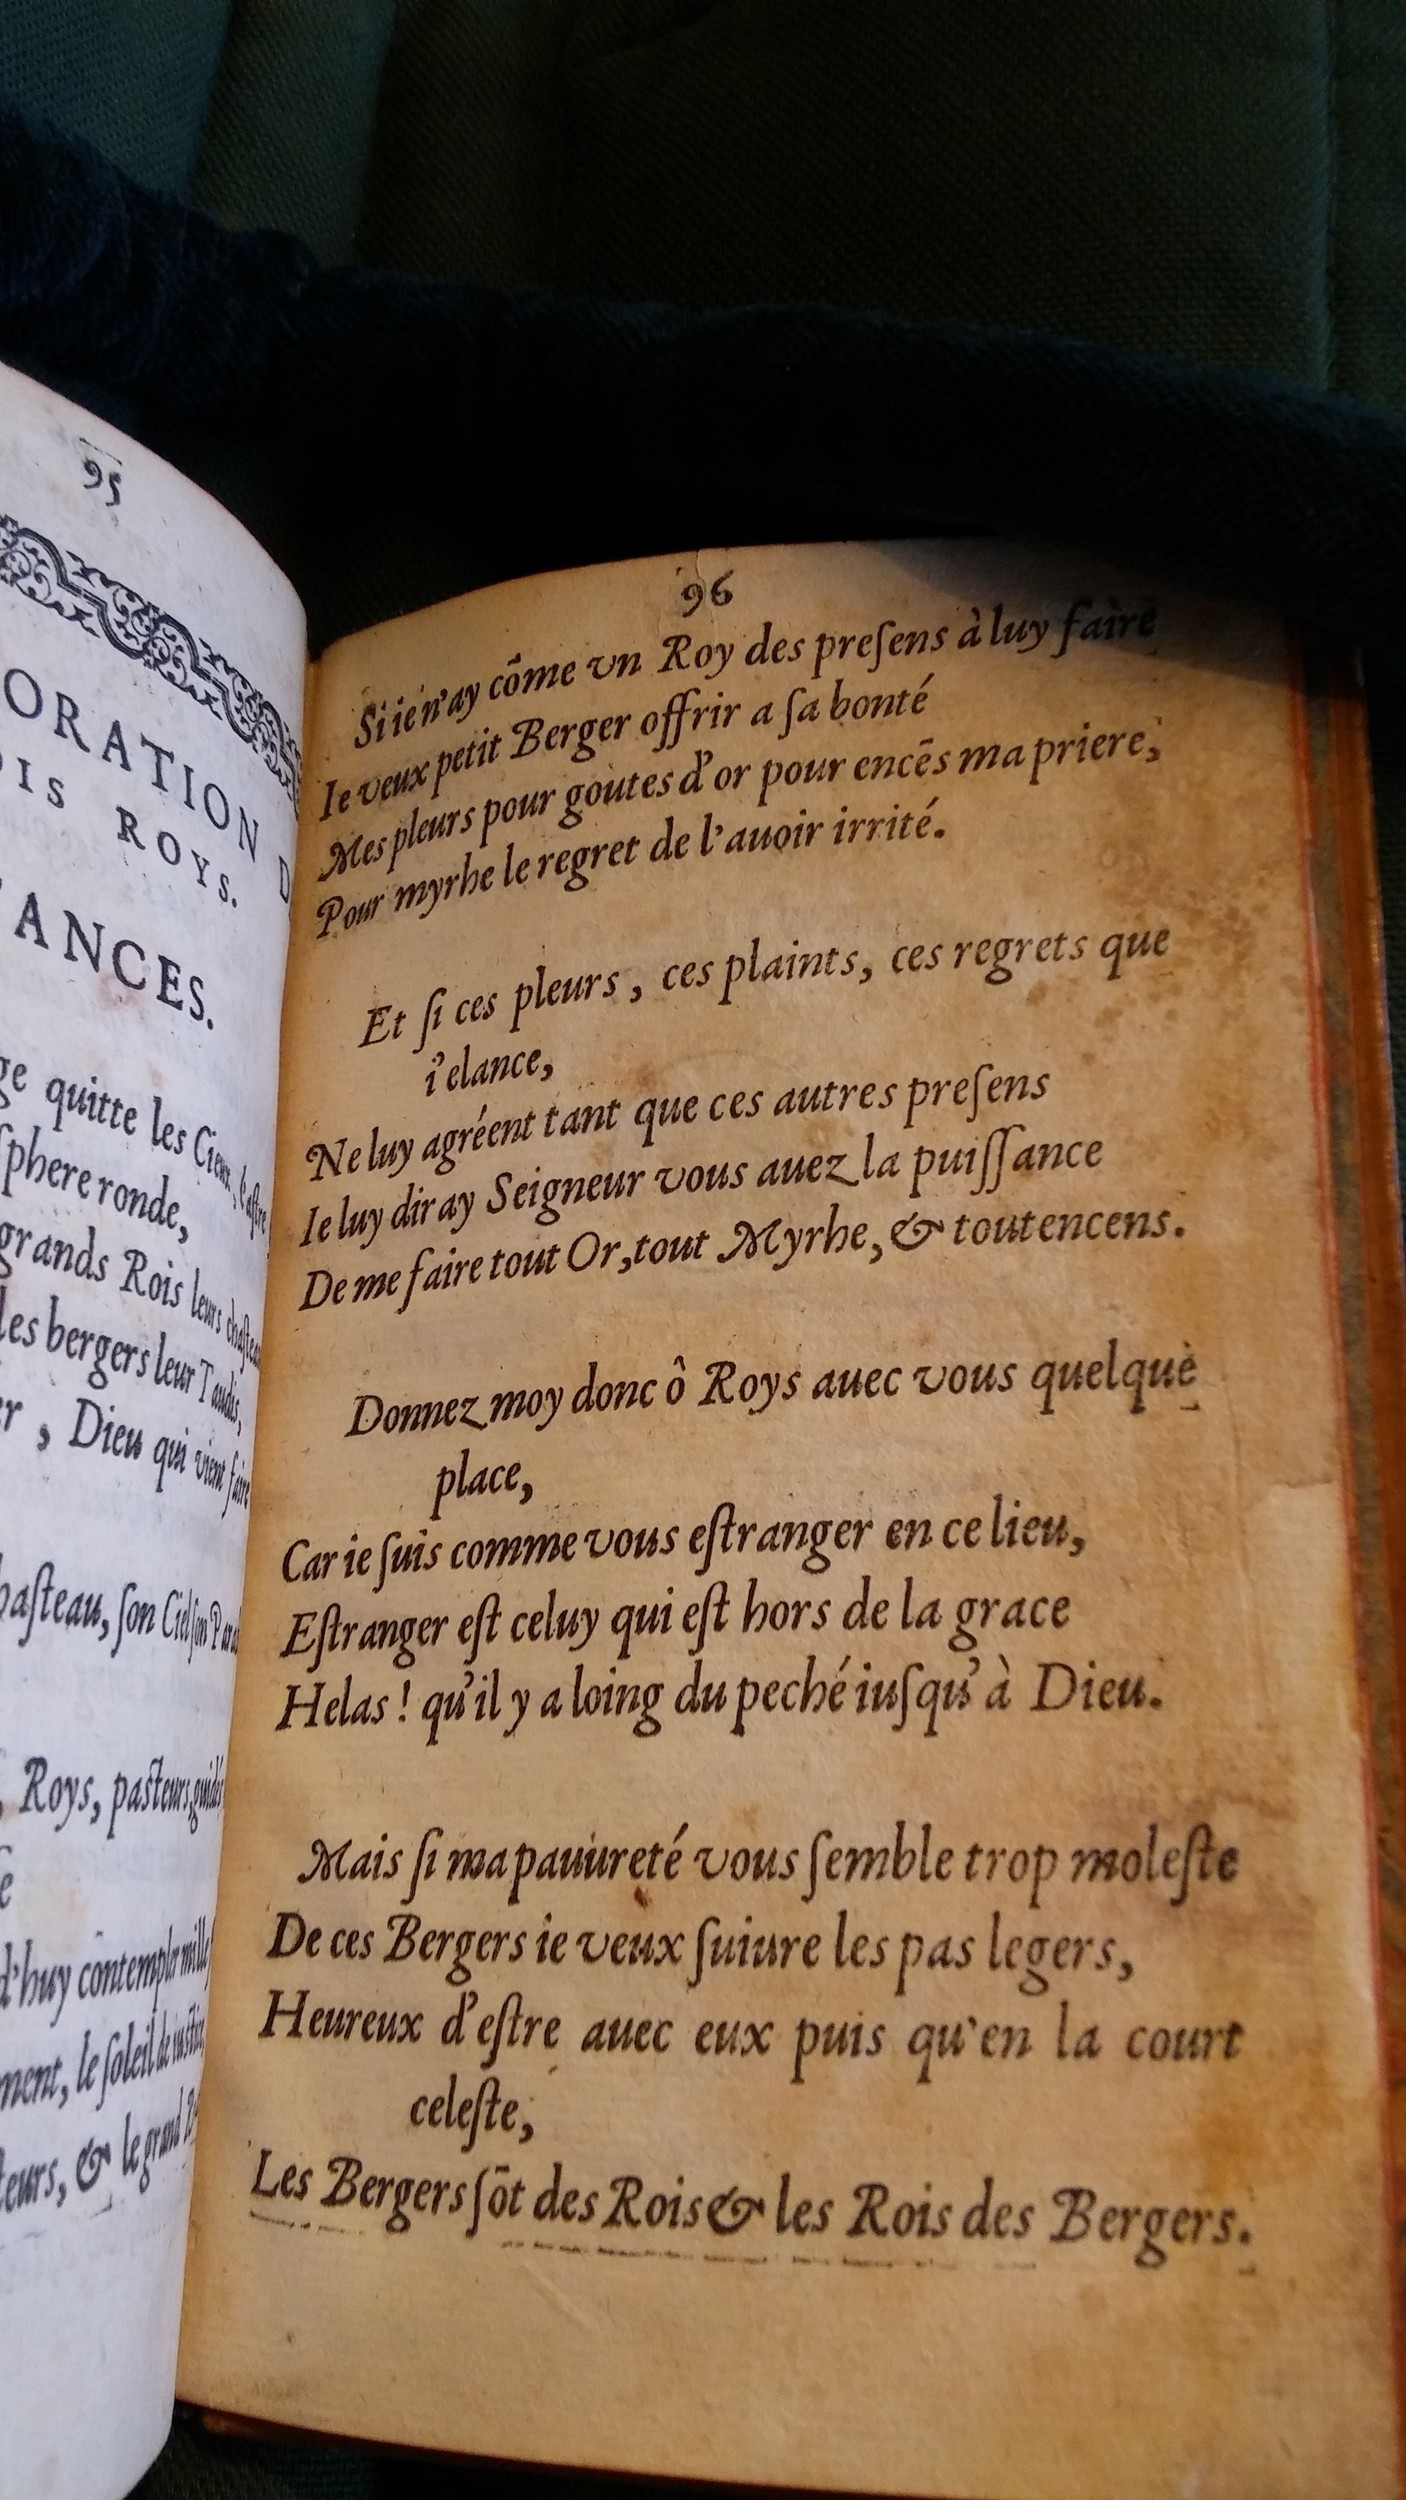 95
ORATION D
OIS ROYS.
ANCES.
ge quitte les Cieux, l'aſtre
ſphere ronde,
grands Rois leurs chaſteau
les bergers leur Taudis,
er, Dieu qui vient faire
haſteau, ſon Ciel ſon Para
, Roys, paſteurs, guidés
d'huy contempler mille
ment, le ſoleil de iuſtice,
teurs, & le grand
96
Si ie n'ay cōme vn Roy des preſens à luy faire
Ie veux petit Berger offrir a ſa bonté
Mes pleurs pour goutes d'or pour encēs ma priere,
Pour myrhe le regret de l'auoir irrité.
Et ſi ces pleurs, ces plaints, ces regrets que
i'elance,
Ne luy agréent tant que ces autres preſens
Ie luy diray Seigneur vous auez la puiſſance
De me faire tout Or, tout Myrhe, & tout encens.
Donnez moy donc ô Roys auec vous quelque
place,
Car ie ſuis comme vous eſtranger en ce lieu,
Eſtranger eſt celuy qui eſt hors de la grace
Helas! qu'il y a loing du peché iuſqu'à Dieu.
Mais ſi ma pauureté vous ſemble trop moleſte
De ces Bergers ie veux ſuiure les pas legers,
Heureux d'eſtre auec eux puis qu'en la court
celeſte,
Les Bergers ſōt des Rois & les Rois des Bergers.